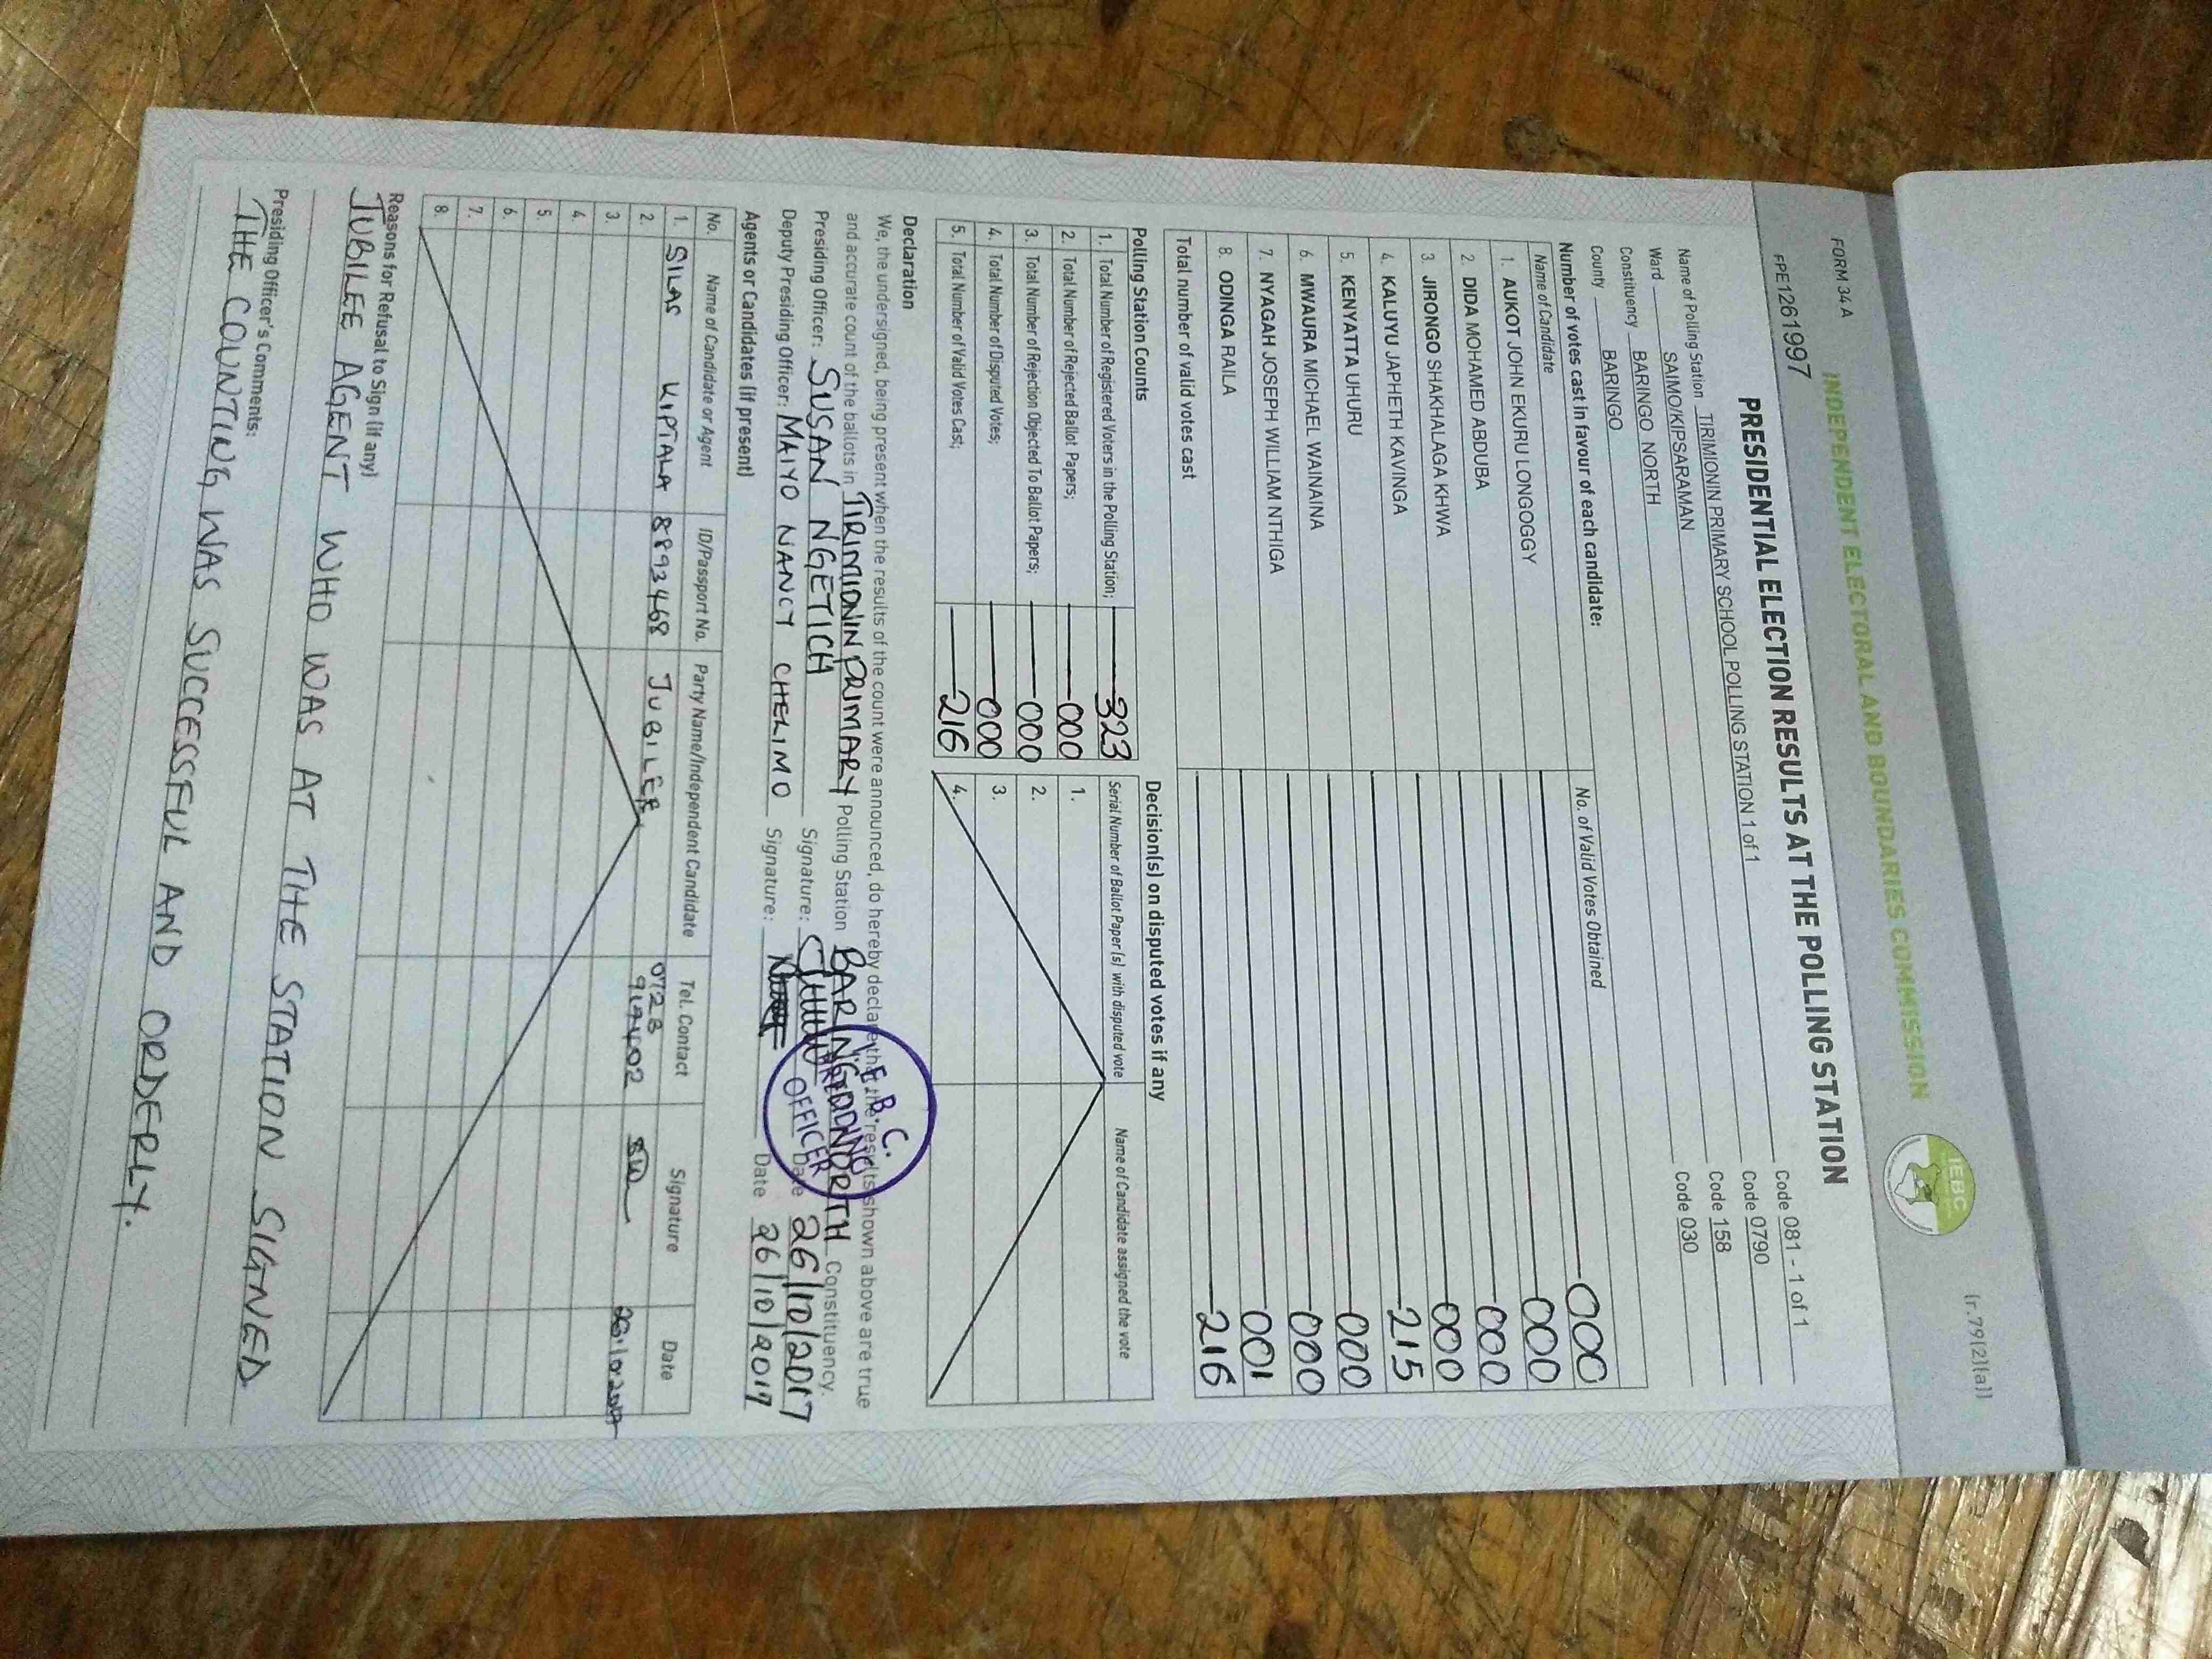 FORM 34A
(r.79(2)(a))
INDEPENDENT ELECTORAL AND BOUNDARIES COMMISSION
IEBC
PE1261997
PRESIDENTIAL ELECTION RESULTS AT THE POLLING STATION
Name of Polling Station TIRIMIONIN PRIMARY SCHOOL POLLING STATION 1 of 1 Code 081 - 1 of 1
Ward SAIMO/KIPSARAMAN Code 0790
Constituency BARINGO NORTH Code 158
County BARINGO Code 030
Number of votes cast in favour of each candidate:
Name of Candidate No. of Valid Votes Obtained
1. AUKOT JOHN EKURU LONGOGGY 000
2. DIDA MOHAMED ABDUBA 000
3. JIRONGO SHAKHALAGA KHWA 000
4. KALUYU JAPHETH KAVINGA 000
5. KENYATTA UHURU 215
6. MWAURA MICHAEL WAINAINA 000
7. NYAGAH JOSEPH WILLIAM NTHIGA 000
8. ODINGA RAILA 001
Total number of valid votes cast 216
Polling Station Counts Decision(s) on disputed votes if any
1. Total Number of Registered Voters in the Polling Station; 323 Serial Number of Ballot Paper (s) with disputed vote Name of Candidate assigned the vote
2. Total Number of Rejected Ballot Papers; 000 1.
3. Total Number of Rejection Objected To Ballot Papers; 000 2.
4. Total Number of Disputed Votes; 000 3.
5. Total Number of Valid Votes Cast; 216 4.
Declaration
We, the undersigned, being present when the results of the count were announced, do hereby declare that the results shown above are true
and accurate count of the ballots in TIRIMIONIN PRIMARY Polling Station BARINGO NORTH Constituency.
Presiding Officer: SUSAN NGETICH Signature: Date 26/10/2017
Deputy Presiding Officer: MAIYO NANCY CHELIMO Signature: Date 26/10/2017
I.E.B.C.
PRESIDING
OFFICER
Agents or Candidates (if present)
No. Name of Candidate or Agent ID/Passport No. Party Name/Independent Candidate Tel. Contact Signature Date
1. SILAS KIPTALA 8893468 JUBILEE 0723
2.
3.
4.
5.
6.
7.
8.
Reasons for Refusal to Sign (if any)
JUBILEE AGENT WHO WAS AT THE STATION SIGNED
Presiding Officer's Comments:
THE COUNTING WAS SUCCESSFUL AND ORDERLY.